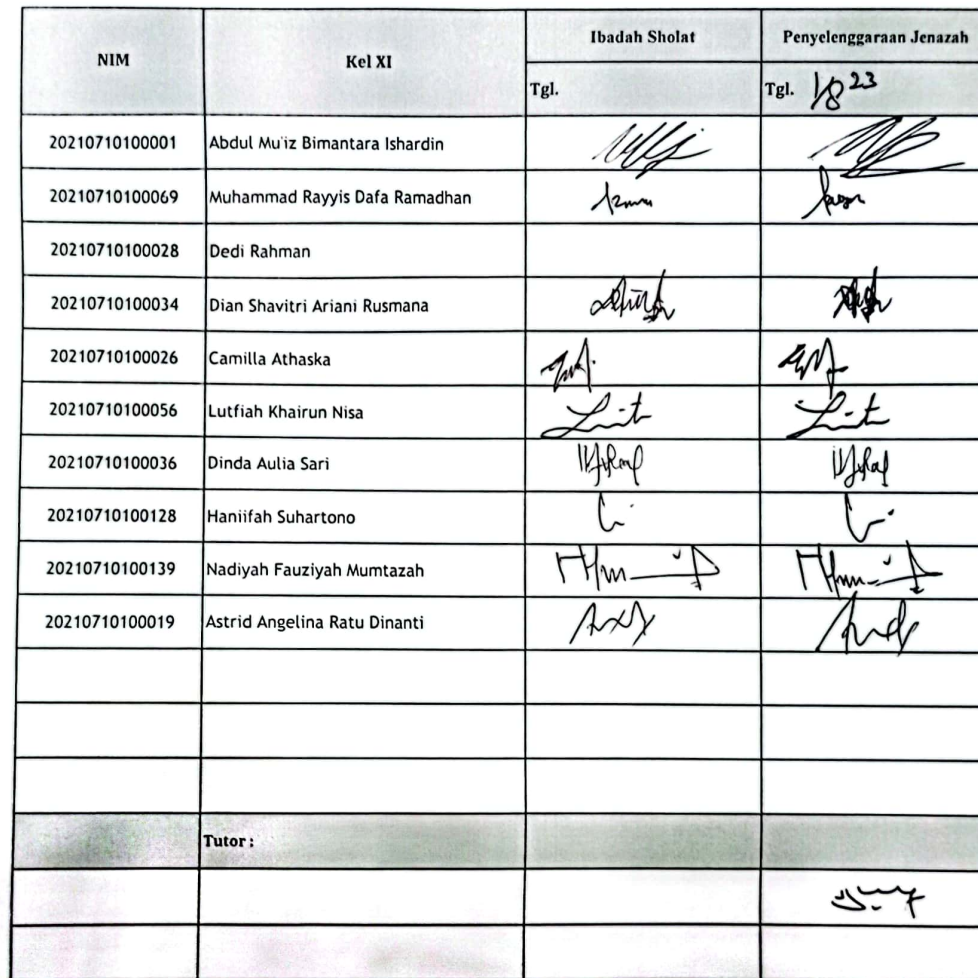 NIM Kel XI Ibadah Sholat Penyelenggaraan Jenazah
Tgl. Tgl. 1/8 23
20210710100001 Abdul Mu'iz Bimantara Ishardin
20210710100069 Muhammad Rayyis Dafa Ramadhan
20210710100028 Dedi Rahman
20210710100034 Dian Shavitri Ariani Rusmana
20210710100026 Camilla Athaska
20210710100056 Lutfiah Khairun Nisa
20210710100036 Dinda Aulia Sari
20210710100128 Haniifah Suhartono
20210710100139 Nadiyah Fauziyah Mumtazah
20210710100019 Astrid Angelina Ratu Dinanti
Tutor :